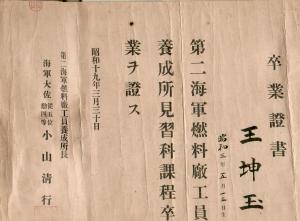 卒業證書
王坤玉
昭和三年五月二五日生
第二海軍燃料廠工員
養成所見習科課程卒
業ヲ證ス
昭和十九年三月三十日
第二海軍燃料廠工員養成所長
海軍大佐從五位勲四等小山清行